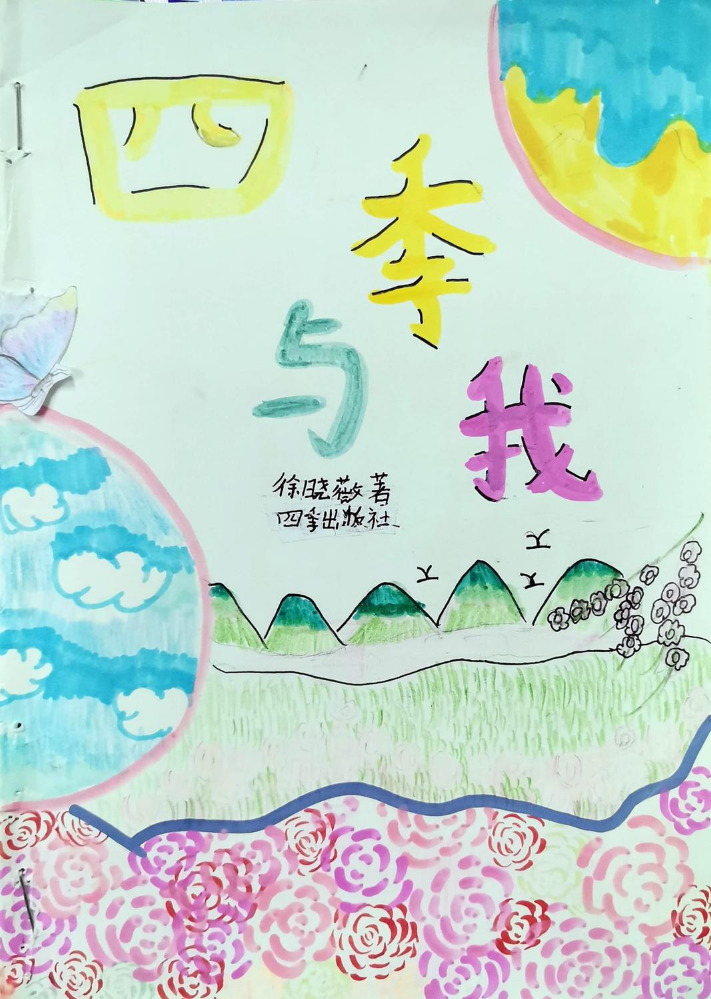 四季
与我
徐晓薇 著
四季出版社